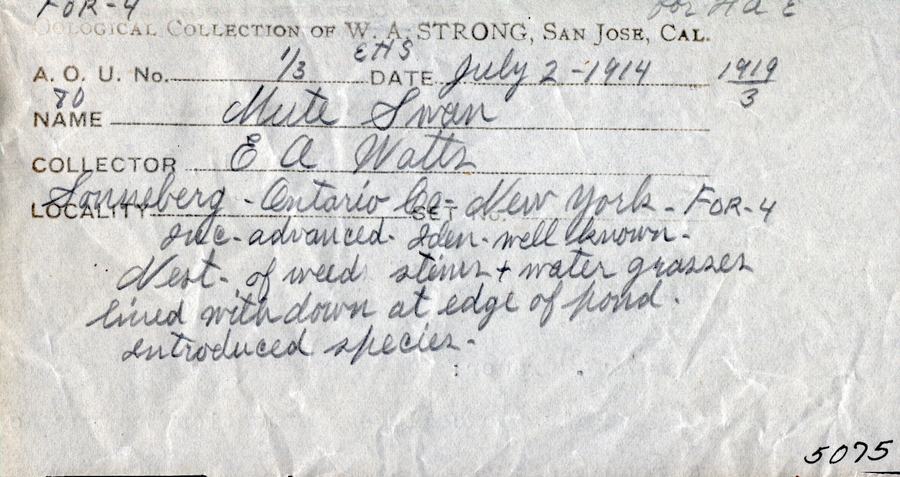 FOR-4
OOLOGICAL COLLECTION OF W. A. STRONG, SAN JOSE, CAL.
A. O. U. No. 1/3 EHS DATE July 2-1914 1919/3
80
NAME Mute Swan
COLLECTOR E A Watts
LOCALITY Sonneberg - Ontario Co - SET New York - FOR-4
Inc - advanced. Iden - well known -
Nest - of weed stems + water grasses
lined with down at edge of pond.
introduced species -
5075